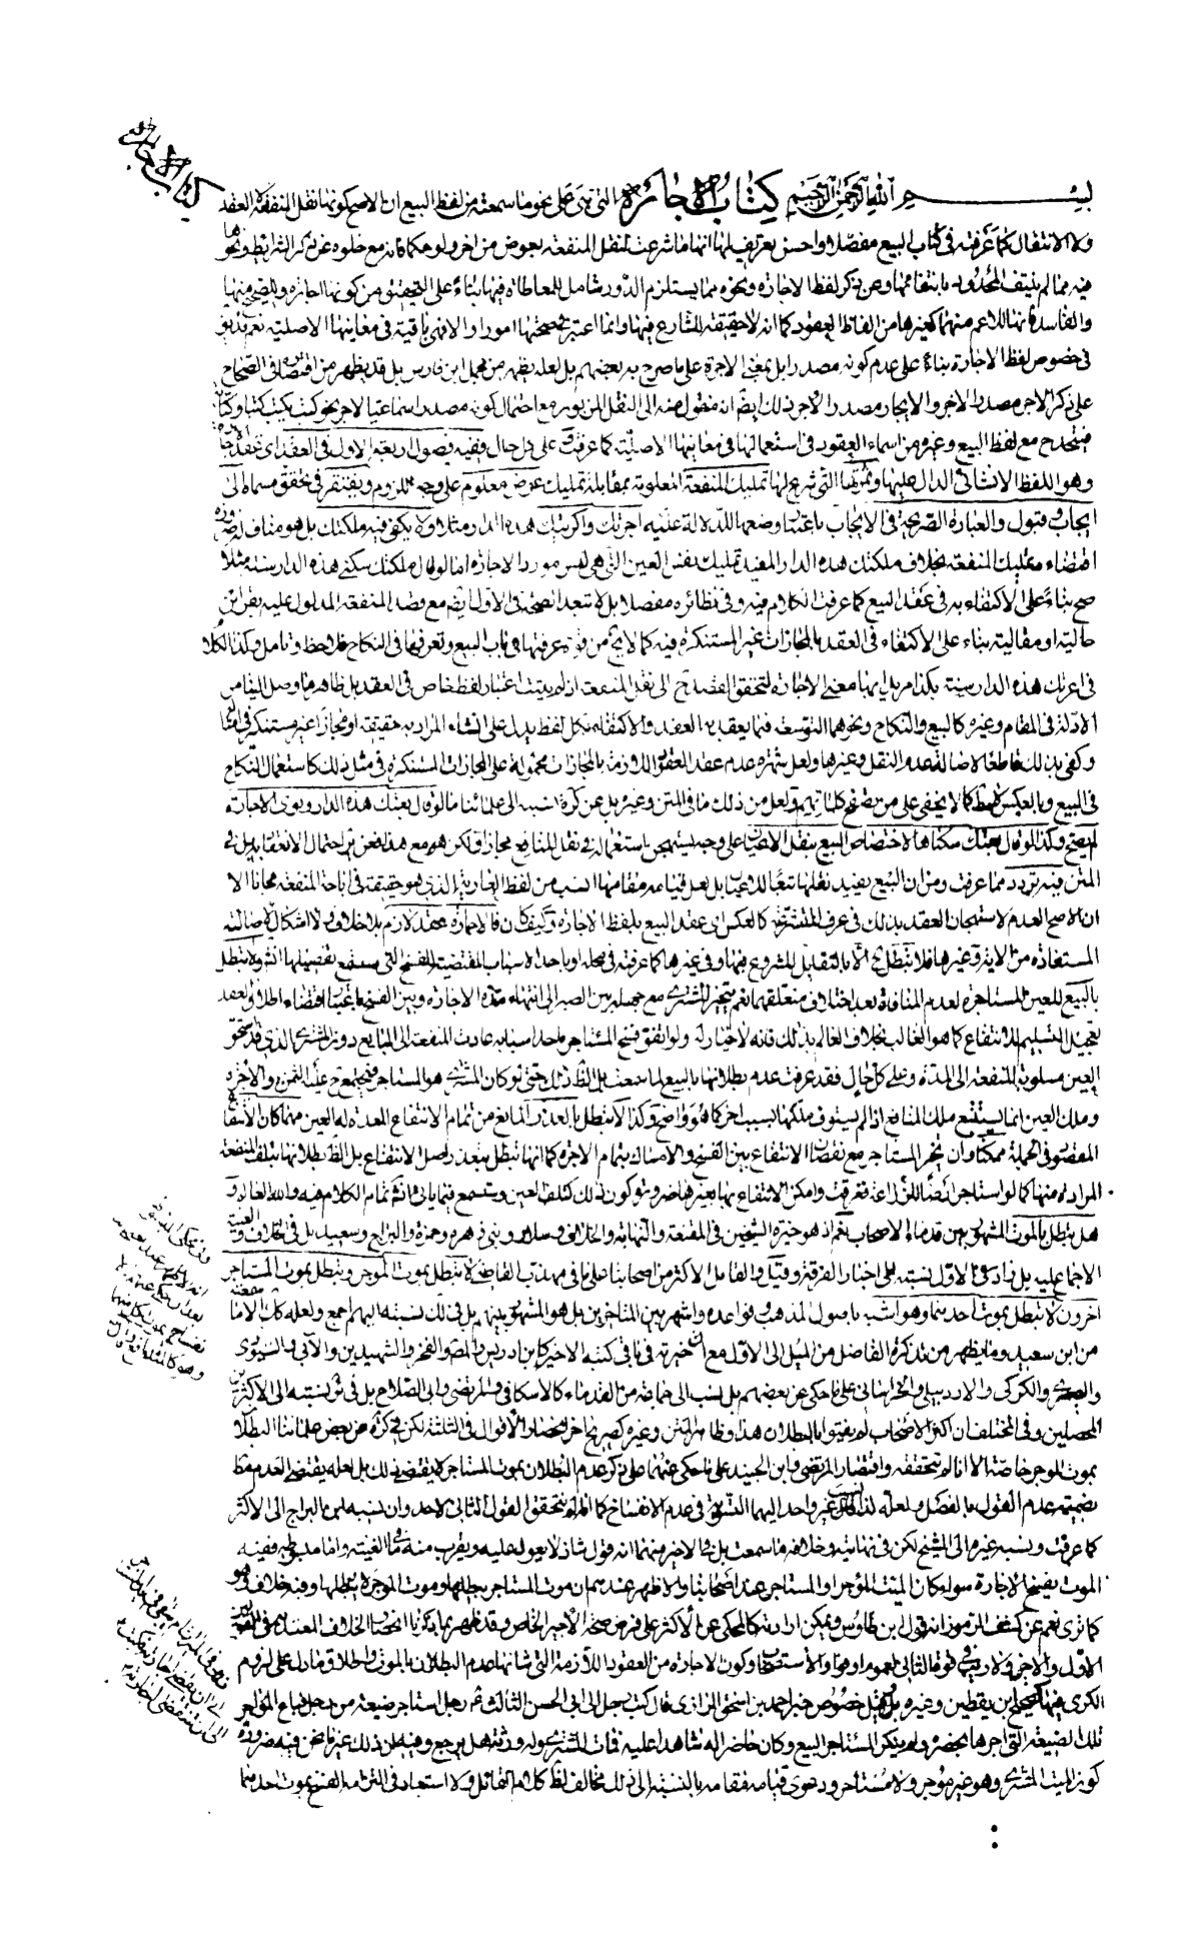 كتاب الاجارة
بسم الله الرحمن الرحيم كتاب الاجارة التي هي على نحو ما سمعته من لفظ البيع ان الاصح كونها نقل المنفعة لا العقد
ولا الانتقال كما عرفته في كتاب البيع مفصلا واحسن تعريف لها انها ما شرعت لنقل المنفعة بعوض من اخر ولو حكما فانه مع خلوه عن ذكر الشرايط ونحوها
فيه مما لم ينتف المحدود بانتفائها وعن ذكر لفظ الاجارة ونحوه مما يستلزم الدور شامل للمعاطاة فيها بناء على التحقيق من كونها اجارة وللصحيح منها
والفاسد فانها للاعم منهما كغيرها من الفاظ العقود كما انه لا حقيقة للشارع فيها وانما اعتبر في صحتها امورا والا فهي باقية في معانيها الاصلية نعم
في خصوص لفظ الاجارة بناء على عدم كونه مصدرا بل بمعنى الاجرة على ما صرح به بعضهم بل لعله يظهر من مجمل ابن فارس بل قد يظهر من اقتصار الصحاح
على ذكر الاجر مصدرا لاجر والايجار مصدرا لآجر ذلك ايضا انه منقول منه الى النقل المزبور مع احتمال كونه مصدرا سماعيا لاجر نحو كتب يكتب كتبا وكتابة
فيتحد ح مع لفظ البيع وغيره من اسماء العقود في استعمالها في معانيها الاصلية كما عرفت وعلى كل حال ففيه فصول اربعة الاول في العقد اي عقد الاجارة
وهو اللفظ الانشائي الدال عليها وثمرتها التي شرع لها تمليك المنفعة المعلومة بمقابلة تمليك عوض معلوم على وجه اللزوم ويفتقر في تحقق مسماه الى
ايجاب وقبول والعبارة الصريحة في الايجاب باعتبار وضعها للدلالة عليه اجرتك واكريتك هذه الدار مثلا ولا يكفي فيه ملكتك بل هو مناف لضرورة
اقتضاءه تمليك المنفعة بخلاف ملكتك هذه الدار المفيد تمليك نفس العين التي هي ليس مورد الاجارة اما لو قال ملكتك سكنى هذه الدار سنة مثلا
صح بناء على الاكتفاء به في عقد البيع كما عرفت الكلام فيه وفي نظائره مفصلا بل لا تبعد الصحة في الاول ايضا مع قصد المنفعة المدلول عليه بقرائن
حالية او مقالية بناء على الاكتفاء في العقد بالمجازات غير المستنكرة فيه كما لا يخ من قوة عرفتها في باب البيع وتعرفها في النكاح فلاحظ وتأمل وكذا الكلام
في اعرتك هذه الدار سنة بكذا مريدا بها معنى الاجارة لتحقق القصد ح الى نقل المنفعة اذ لم يثبت اعتبار لفظ خاص في العقد بل ظاهر ما وصل الينا من
الادلة في المقام وغيره كالبيع والنكاح ونحوهما التوسعة فيما يعقد به العقد والاكتفاء بكل لفظ يدل على انشاء المراد به حقيقة او مجازا غير مستنكر في امثالها
وكفى بذلك قاطعا لاصالة عدم النقل وغيرها ولعل شهرة عدم عقد العقود اللازمة بالمجازات محمولة على المجازات المستنكرة في مثل ذلك كاستعمال النكاح
في البيع وبالعكس كما لا يخفى على من تصفح كلماتهم ولعل من ذلك ما في المتن وغيره بل عن كرة نسبه الى علمائنا ما لو قال بعتك هذه الدار ونوى الاجارة
لم يصح وكذا لو قال بعتك سكناها لاختصاص البيع بنقل الاعيان على وجه يستهجن استعماله في نقل المنافع مجازا ولكن هو مع هذا فعن ير احتمال الانعقاد بل في
المتن فيه تردد مما عرفت ومن ان البيع يفيد نقلها تبعا للاعيان بل لعل قيامه مقامها انسب من لفظ العارية الذي هو حقيقة في اباحة المنفعة مجانا الا
ان الاصح العدم لاستهجان العقد بذلك في عرف المتشرعة كالعكس اي عقد البيع بلفظ الاجارة وكيف كان فالاجارة عقد لازم بلا خلاف ولا اشكال لاصالته
المستفادة من الاية وغيرها فلا تبطل ح الا بالتقايل المشروع فيها وفي غيرها كما عرفته في محله او باحد الاسباب المقتضية للفسخ التي ستسمع تفصيلها انش ولا تبطل
بالبيع للعين المستاجرة لعدم المنافاة بعد اختلاف متعلقهما نعم يتخير المشتري مع جهله بين الصبر الى انتهاء مدة الاجارة وبين الفسخ باعتبار اقتضاء اطلاق العقد
تعجيل التسليم للانتفاع كما هو الغالب بخلاف العالم بذلك فانه لا خيار له ولو اتفق فسخ المستاجر باحد اسبابه عادت المنفعة الى البايع دون المشتري الذي قد استحق
العين مسلوبة المنفعة الى المدة وعلى كل حال فقد عرفت عدم بطلانها بالبيع لما سمعت بل الظ ذلك حتى لو كان المشتري هو المستاجر فيجتمع ح عليه الثمن والاجرة
وملك العين انما يستتبع ملك المنافع اذا لم يستوف ملكها بسبب اخر كما هو واضح وكذا لا تبطل بالعذر المانع من تمام الانتفاع المعدة له العين مهما كان الانتفاع
المقصود في الجملة ممكنا وان تخير المستاجر مع نقصان الانتفاع بين الفسخ والامساك بتمام الاجرة كما انها تبطل بتعذر اصل الانتفاع بل الظ بطلانها بتلف المنفعة
المرادة منها كما لو استاجر ارضا للزراعة فغرقت وامكن الانتفاع بها بغيرها ضرورة كون ذلك كتلف العين وستسمع فيما ياتي انش تمام الكلام فيه والله العالم و
هل تبطل بالموت المشهور بين قدماء الاصحاب نعم اذ هو خيرة الشيخين في المقنعة والنهاية والخلاف وسلار وبني زهرة وحمزة والبراج وسعيد بل في خلاف والغنية
الاجماع عليه بل زاد في الاول نسبته الى اخبار الفرقة وقيل والقائل الاكثر من اصحابنا على ما في مهذب القاضي لا تبطل بموت الموجر وتبطل بموت المستاجر وقال
اخرون لا تبطل بموت احدهما وهو اشبه باصول المذهب وقواعده واشهر بين المتاخرين بل هو المشهور بينهم بل في لك نسبته اليهم اجمع ولعله كك الا ما
من ابن سعيد وما يظهر من تذكرة الفاضل من الميل الى الاول مع ان خيرته في باقي كتبه الاخير كابن ادريس والمص والفخر والشهيدين والآبي والسيوري
والصيمري والكركي والاردبيلي والخراساني على ما حكي عن بعضهم بل نسب الى جماعة من القدماء كالاسكافي والمرتضى وابي الصلاح بل في ئر نسبته الى الاكثرين
المحصلين وفي المختلف ان اكثر الاصحاب لم يفتوا بالبطلان هذا وظاهر المتن وغيره كصريح اخر انحصار الاقوال في الثلثة لكن في كرة عن بعض علمائنا البطلان
بموت الموجر خاصة الا انا لم نتحققه واقتصار المرتضى وابن الجنيد على ما حكي عنهما على ذكر عدم البطلان بموت المستاجر لا يقتضي ذلك بل لعله يقتضي العدم مطلقا
بضميمة عدم القول بالفصل ولعله لذا نسب غير واحد اليهما التسوية في عدم الانفساخ كما انه لم نتحقق القول الثاني لاحد وان نسبه لهما البراج الى الاكثر
كما عرفت ونسبه غيره الى الشيخ لكن في نهايته وخلافه ما سمعت بل في الاخير منهما انه قول شاذ لا يعول عليه ويقرب منه ما في الغنية واما مبسوطه ففيه
الموت يفسخ الاجارة سواء كان الميت المؤجر او المستاجر عند اصحابنا والاظهر عندهم ان موت المستاجر يبطلها وموت الموجر لا يبطلها وفيه خلاف وهو
كما ترى نعم عن كشف الرموز انه قول ابن طاوس ويمكن ارادته كالمحكي عن الاكثر على فرض صحته الاجير الخاص وقد ظهر بما ذكرنا انحصار الخلاف المعتد به في القولين
الاول والاخير ولا ريب في قوة الثاني لعموم اوفوا والاستصحاب وكون الاجارة من العقود اللازمة التي شانها عدم البطلان بالموت واطلاق ما دل على لزوم
الكرى فيها كصحيح ابن يقطين وغيره بل قيل خصوص خبر احمد بن اسحق الرازي قال كتب رجل الى ابي الحسن الثالث ع رجل استاجر ضيعة من رجل فباع المؤاجر
تلك الضيعة التي اجرها بحضرة ولم ينكر المستاجر البيع وكان حاضرا له شاهدا عليه فمات المشتري وله ورثة هل يرجع وفيه ان ذلك غير ما نحن فيه ضرورة
كون الميت المشتري وهو غير مؤجر ولا مستاجر ودعوى قيامه مقامه بالنسبة الى ذلك مخالف لظ كلام القائل ولا استبعاد في التزامه الفسخ بموت احدهما